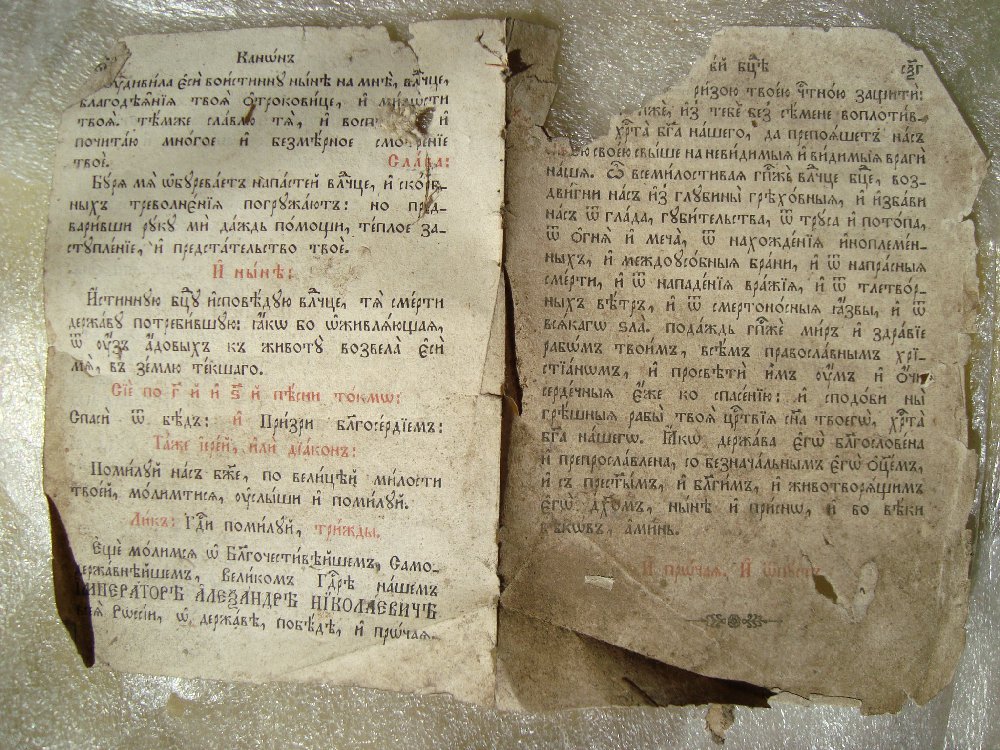 Канѡ́нъ
ᲂу҆диви́ла є҆сѝ вои́стинну ны́нѣ на мнѣ̀, влⷣчце,
благодѣѧ̑нїѧ твоѧ̑ ѻ҆трокови́це, и҆ ми́лѡсти
твоѧ̑. тѣ́мже сла́влю тѧ̀, и҆ и҆
почита́ю мно́гое и҆ безмѣ́рное смотре́нїе
твоѐ. Сла́ва:
Бꙋ́рѧ мѧ̀ ѡ҆бꙋрева́етъ напа́стей влⷣчце, и҆ скѡ́рб-
ныхъ треволне́нїѧ погрꙋжа́ютъ: но пред-
вари́вши рꙋ́кꙋ мѝ да́ждь по́мощи, те́плое за-
стꙋпле́нїе, и҆ предста́тельство твоѐ.
И҆ ны́нѣ:
И҆́стиннꙋю бцⷣꙋ и҆сповѣ́дꙋю влⷣчце, тѧ̀ сме́рти
держа́вꙋ потреби́вшꙋю: ꙗ҆́кѡ бо ѡ҆живлѧ́ющаѧ,
ѿ ᲂу҆́зъ а҆́довыхъ къ животꙋ̀ возвела̀ є҆сѝ
мѧ̀, въ зе́млю те́кшаго.
Сїѐ по г҃ й и҆ ѕ҃ й пѣ́сни то́кмѡ:
Спасѝ ѿ бѣ́дъ: и҆ При́зри бл҃госе́рдїемъ:
Та́же і҆ере́й, и҆лѝ дїа́конъ:
Поми́лꙋй на́съ бж҃е, по вели́цѣй ми́лости
твое́й, мо́лимтисѧ, ᲂу҆слы́ши и҆ поми́лꙋй.
Ли́къ: Гдⷭ҇и поми́лꙋй, три́жды.
Є҆щѐ мо́лимсѧ ѡ҆ Бл҃гочести́вѣйшемъ, Само-
держа́внѣйшемъ, вели́комъ Гдⷭ҇рѣ на́шемъ
И҆МПЕРА́ТОРѢ А҆ЛЕѮА́НДРѢ НІКОЛА́ЕВИЧѢ
всеѧ̀ Рѡссі́и, ѡ҆ держа́вѣ, побѣ́дѣ, и҆ прѡ́чаѧ.
бцⷣѣ сѯ҃г
ри́зою твое́ю чⷭ҇тно́ю защитѝ:
из̾ тебє̀ без̾ сѣ́мене воплоти́в-
хрⷭ҇та̀ бг҃а на́шего, да препоѧ́шетъ на́съ
си́лою свое́ю свы́ше на неви́димыѧ и҆ ви́димыѧ врагѝ
на́шѧ. Ѽ всеми́лостиваѧ гпⷭ҇жѐ влⷣчце бцⷣе, воз-
дви́гни на́съ и҆з̾ глꙋбины̀ грѣхо́вныѧ, и҆ и҆зба́ви
на́съ ѿ гла́да, гꙋби́тельства, ѿ трꙋ́са и҆ пото́па,
ѿ ѻ҆гнѧ̀ и҆ меча̀, ѿ нахожде́нїѧ и҆ноплеме́н-
ныхъ, и҆ междоꙋсо́бныѧ бра́ни, и҆ ѿ напра́сныѧ
сме́рти, и҆ ѿ нападе́нїѧ вра́жїѧ, и҆ ѿ тлетво́р-
ныхъ вѣ̑тръ, и҆ ѿ смертоно́сныѧ ꙗ҆́звы, и҆ ѿ
всѧ́кагѡ ѕла̀. пода́ждь гпⷭ҇жѐ ми́ръ и҆ здра́вїе
рабѡ́мъ твои̑мъ, всѣ̑мъ правосла́внымъ хрїс-
тїа́нѡмъ, и҆ просвѣтѝ и҆̀мъ ᲂу҆́мъ и҆ ѻ҆́чи
серде́чныѧ є҆́же ко спасе́нїю: и҆ сподо́би ны̀
грѣ́шныѧ рабы̑ твоѧ̑ црⷭ҇твїѧ сн҃а твоегѡ̀, хрⷭ҇та̀
бг҃а на́шегѡ. Ꙗ҆́кѡ держа́ва є҆гѡ̀ бл҃гослове́на
и҆ препросла́влена, со безнача́льнымъ є҆гѡ̀ ѻ҆ц҃е́мъ,
и҆ съ прест҃ы́мъ, и҆ бл҃ги́мъ, и҆ животворѧ́щимъ
є҆гѡ̀ дх҃омъ, ны́нѣ и҆ при́снѡ, и҆ во вѣ́ки
вѣкѡ́въ, а҆ми́нь.
И҆ прѡ́чаѧ. И҆ ѿпꙋ́стъ.